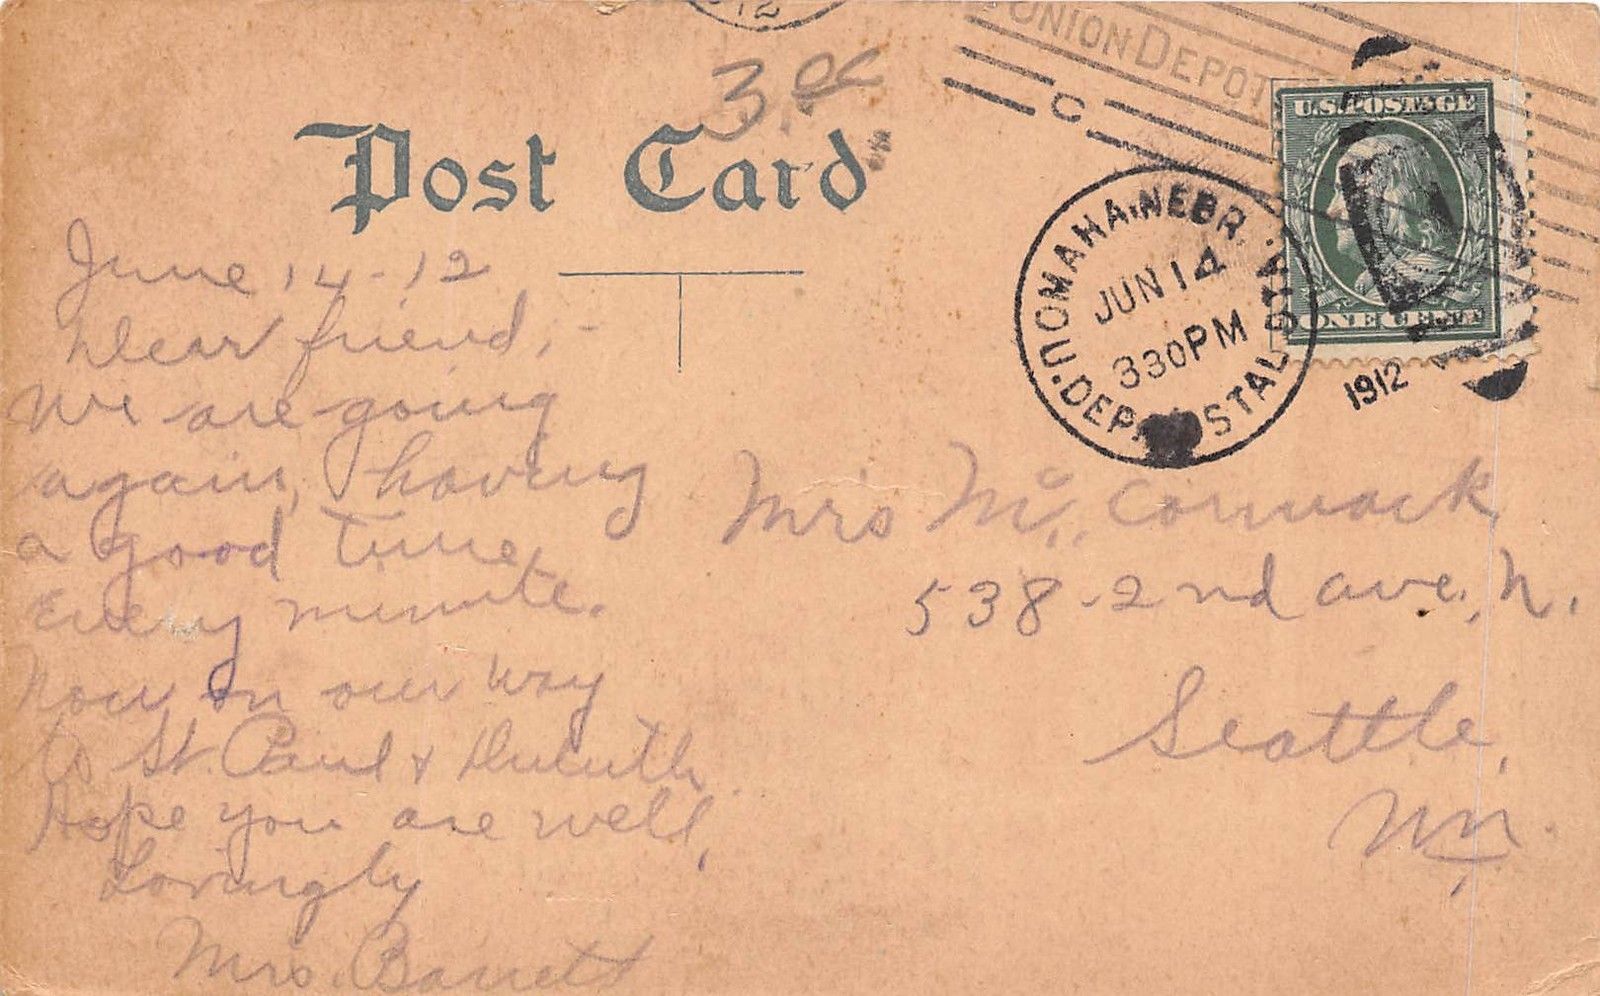 12
UNION DEPOT
C
3.00
Post Card
U.S. POSTAGE
ONE CENT
OMAHA, NEBR.
JUN 14
330 PM
1912
June 14-12
Dear friend,-
We are going
again, having
a good time
Every minute.
Now on our way
to St. Paul & Duluth
Hope you are well,
Lovingly
Mrs. Barrett
Mrs Mc. Cormack
538-2nd ave, N.
Seattle,
Wn.